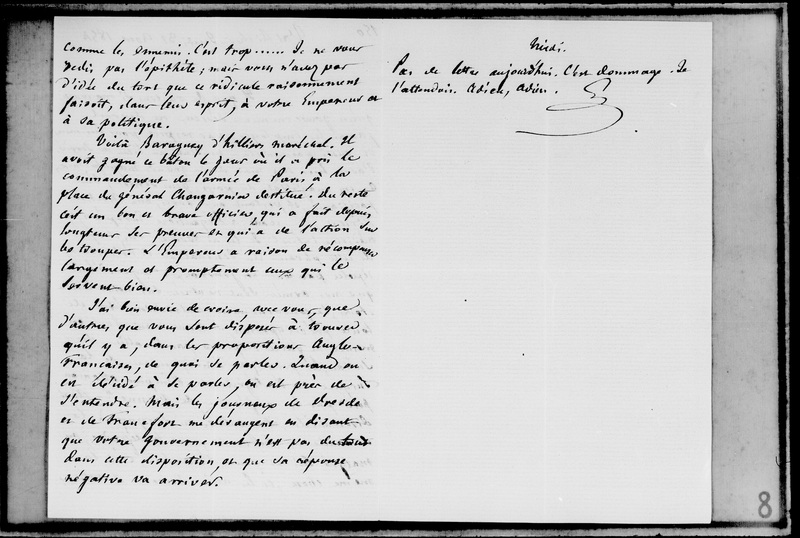 comme les ennemis. C'est trop...... Je ne vous
redis pas l'épithète; mais vous n'avez pas
d'idée du tort que ce ridicule raisonnement
faisoit, dans leur esprit, à votre Empereur et
à sa politique.
Voilà Baraguey d'hilliers maréchal. Il
avoit gagné ce bâton le jour où il a pris le
commandement de l'armée de Paris à la
place du général Changarnier destitué. Du reste
c'est un bon et brave officier, qui a fait depuis
longtems ses preuves et qui a de l'action sur
les troupes. L'Empereur a raison de récompenser
largement et promptement ceux qui le
servent bien.
J'ai bien envie de croire, avec vous, que
d'autres que vous sont disposés à trouver
qu'il y a, dans les propositions Anglo-
françaises, de quoi se parler. Quand on
est décidé à se parler, on est près de
s'entendre. Mais les journaux de Dresde
et de Francfort me dérangent en disant
que votre gouvernement n'est pas du tout
dans cette disposition, et que sa réponse
négative va arriver.
Midi.
Pas de lettre aujourd'hui. C'est dommage. Je
l'attendois. Adieu, Adieu.
8